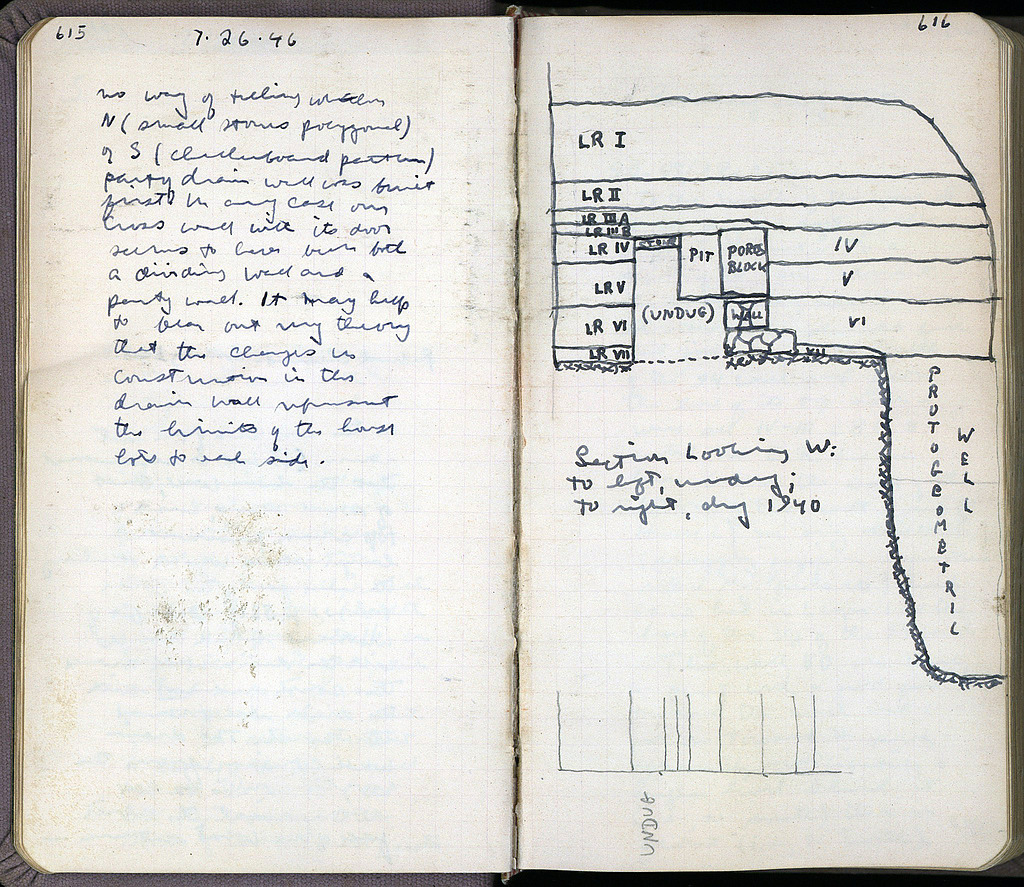 615
7·26·46
no way of telling whether
N (small stones polygonal)
or S (checkerboard pattern)
party drain wall was built
first. In any case our
cross wall with its door
seems to have been both
a dividing wall and a
party wall. It may help
to bear out my theory
that the changes in
construction in this
drain wall represent
the limits of the house
lots to each side.
616
LR I
LR II
LR III A
LR III B
LR IV
STONE
PIT
POROS
BLOCK
IV
LR V
V
(UNDUG)
WALL
LR VI
VI
LR VII
VII
PROTOGEOMETRIC
WELL
Section Looking W:
to left, undug;
to right, dug 1940
UNDUG